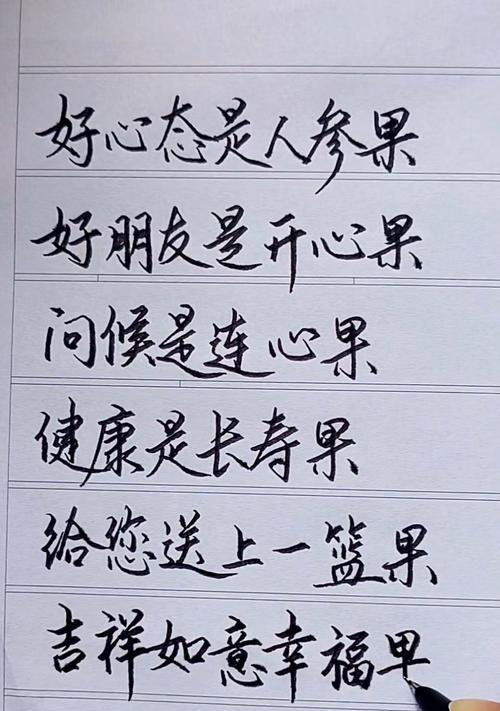 好心态是人参果
好朋友是开心果
问候是连心果
健康是长寿果
给您送上一篮果
吉祥如意幸福